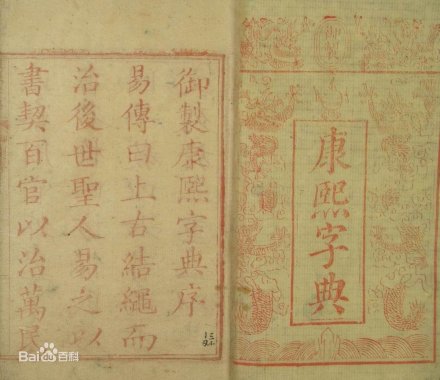 康熙字典
御製康熙字典序
易傳曰上古結繩而
治後世聖人易之以
書契百官以治萬民
Bai百科